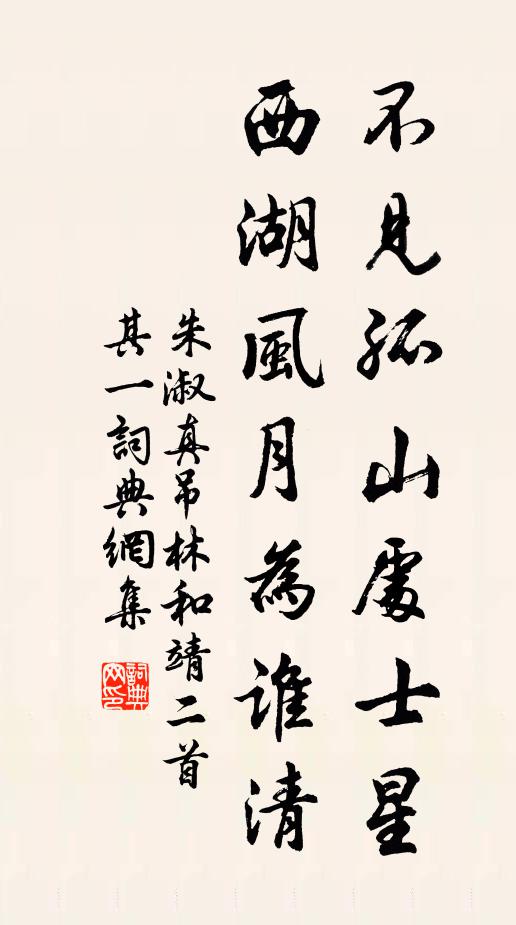 不見孤山處士星
西湖風月為誰清
朱淑真吊林和靖二首
其一詞典網集
詞典網印